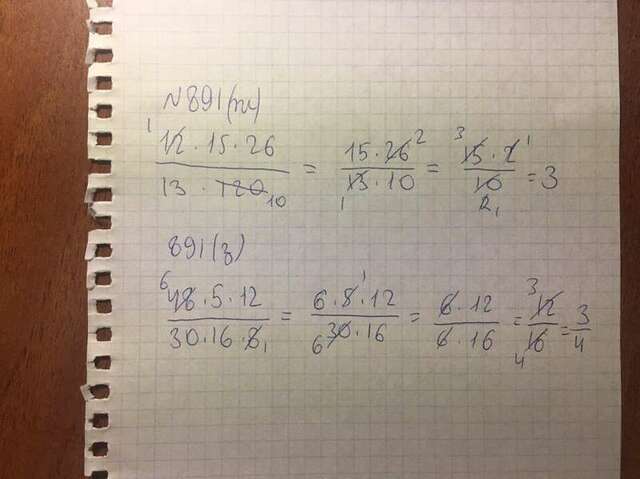 №891(ж)
12·15·26/13·120 = 15·26/13·10 = 15·2/10 = 3
891(з)
48·5·12/30·16·8 = 6·5·12/30·16 = 6·12/6·16 = 12/16 = 3/4